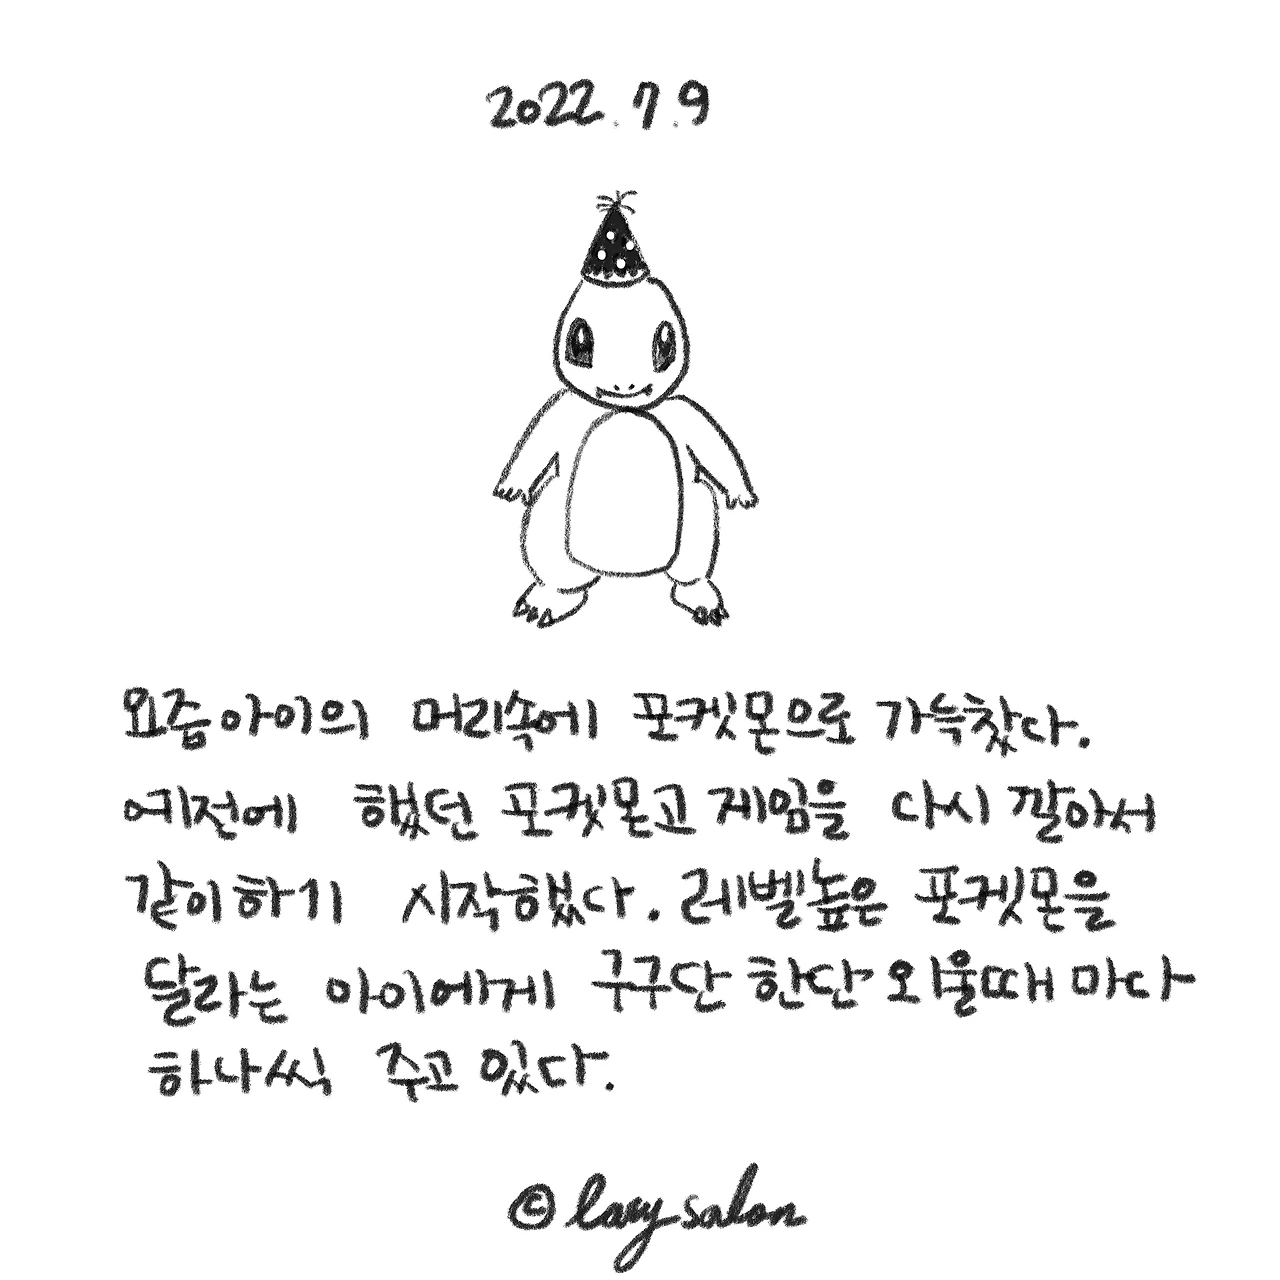 2022.7.9
요즘 아이의 머리속에 포켓몬으로 가득찼다.
예전에 했던 포켓몬고 게임을 다시 깔아서
같이하기 시작했다. 레벨높은 포켓몬을
달라는 아이에게 구구단 한단 외울때 마다
하나씩 주고 있다.
© lazy salon